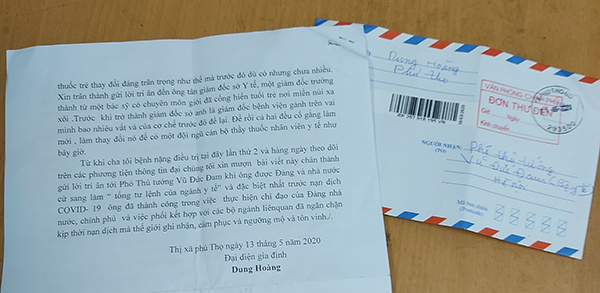 thuốc trẻ thay đổi đáng trân trọng như thế mà trước đó dù có nhưng chưa nhiều.
Xin trân thành gửi lời tri ân đến ông tân giám đốc sở Y tế, một giám đốc trưởng
thành từ một bác sỹ có chuyên môn giỏi đã cống hiến tuổi trẻ nơi miền núi xa
xôi .Trước khi trở thành giám đốc sở anh là giám đốc bệnh viện gánh trên vai
mình bao nhiêu vất vả của cơ chế trước đó để lại. Để rồi cả hai đều cố gắng làm
mới , làm thay đổi nó để có một đội ngũ cán bộ thầy thuốc nhân viên y tế như
bây giờ.
Từ khi cha tôi bệnh nặng điều trị tại đây lần thứ 2 và hàng ngày theo dõi
trên các phương tiện thông tin đại chúng tôi xin mượn bài viết này chân thành
gửi lời tri ân tới Phó Thủ tướng Vũ Đức Đam khi ông được Đảng và nhà nước
cử sang làm " tổng tư lệnh của ngành y tế" và đặc biệt nhất trước nạn dịch
COVID- 19 ông đã thành công trong việc thực hiện chỉ đạo của Đảng nhà
nước, chính phủ và việc phối kết hợp với các bộ ngành liênquan đã ngăn chặn
kịp thời nạn dịch mà thế giới ghi nhận, cảm phục và ngưỡng mộ và tôn vinh./.
Thị xã phú Thọ ngày 13 tháng 5 năm 2020
Đại diện gia đình
Dung Hoàng
Dung Hoàng
Phú Thọ
VĂN PHÒNG CHÍNH PHỦ
ĐƠN THƯ ĐẾN
Giờ
Ngày
Kính chuyển:
293500
NGƯỜI NHẬN:
(TO)
Phó thủ tướng
Vũ Đức Đam
Hà Nội
Mã bưu chính
(Postcode)